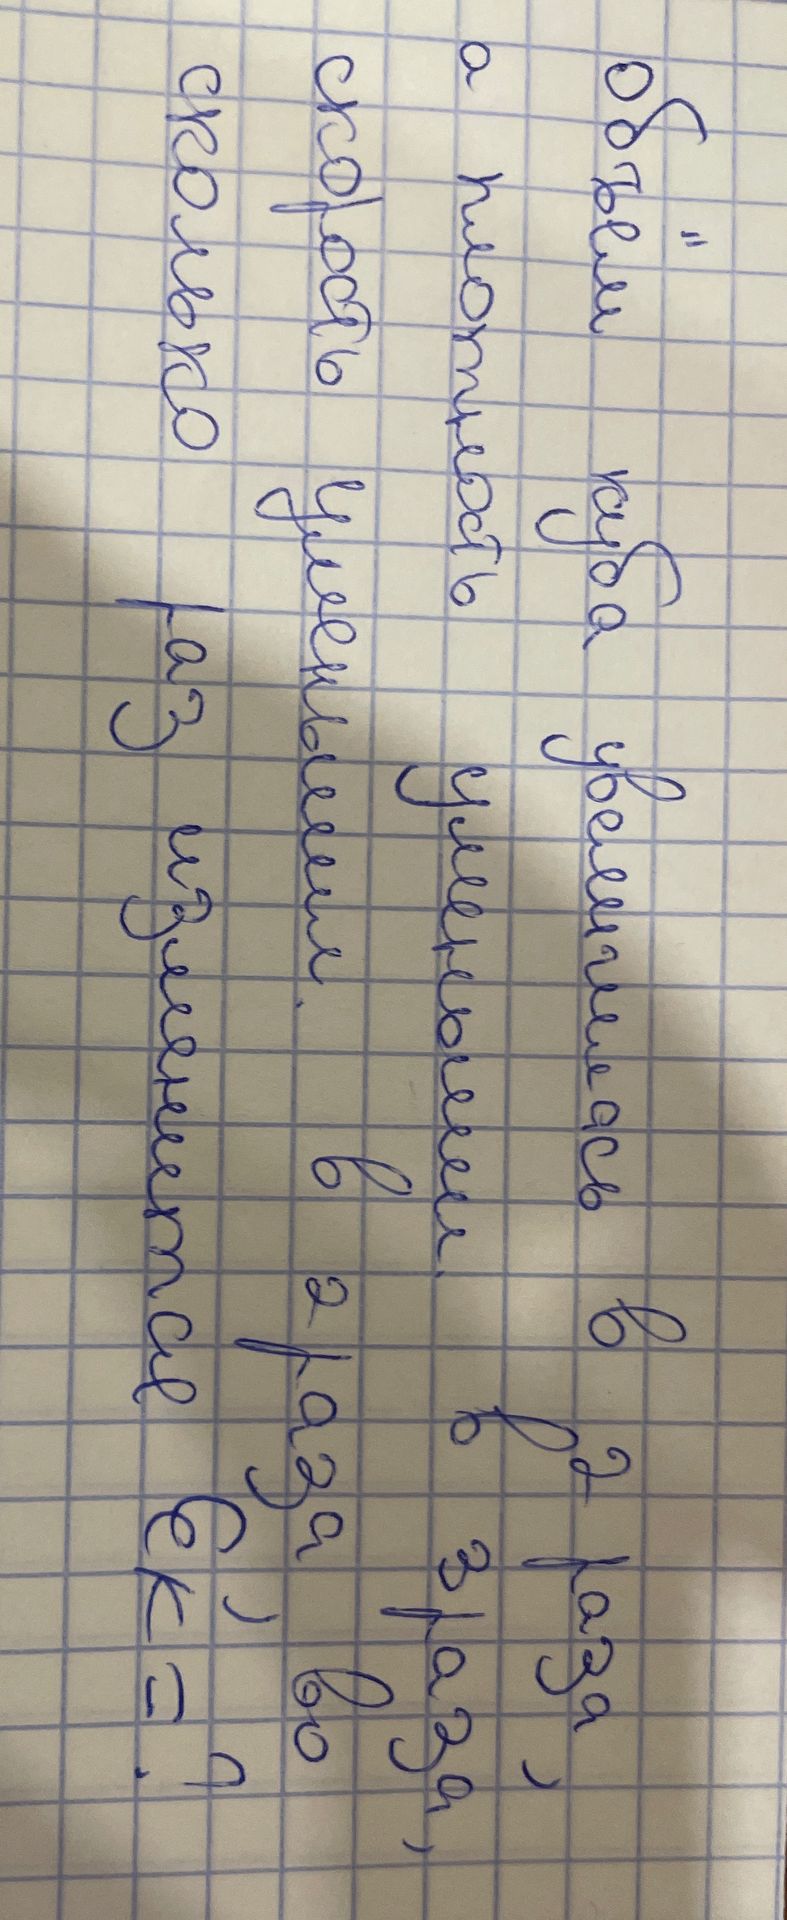 объём куба увеличилась в 2 раза,
а плотность уменьшил. в 3 раза,
скорость уменьшил. в 2 раза во
сколько раз изменится Eк'=?